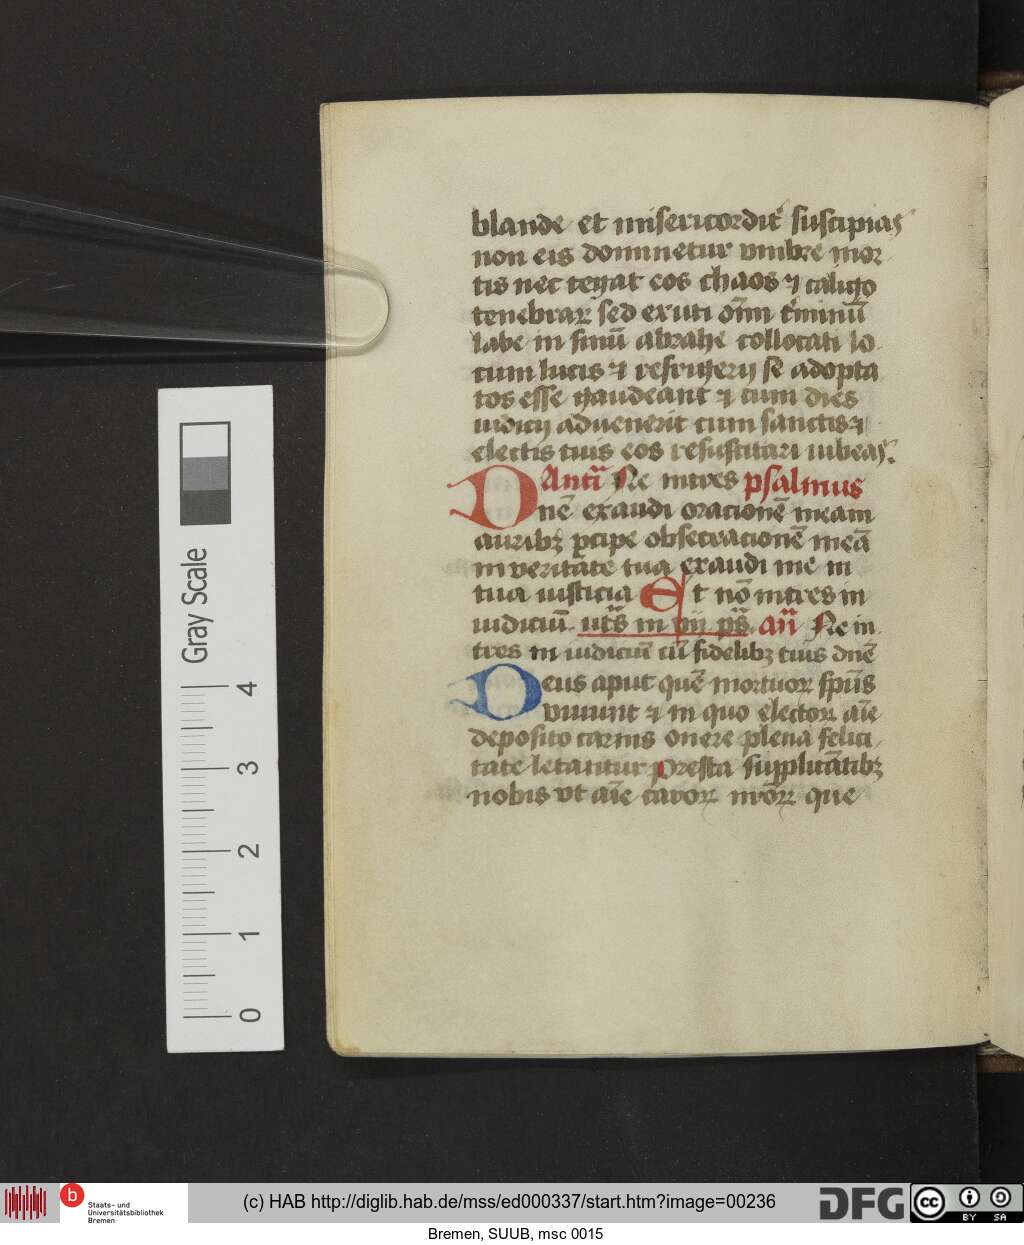 blande et misericordit᷑ suscipias
non eis dominetur vmbre mor
tis nec tegat eos chaos ⁊ caligo
tenebraꝝ sed exuti om̄i t᷑minū
labe in sinū abrahe collocati lo
cum lucis ⁊ refrigerij se adopta
tos esse gaudeant ⁊ cum dies
iudicij aduenerit cum sanctis ⁊
electis tuis eos resuscitari iubeas.
Antī Ne intres psalmus
Dnē exaudi orationē meam
auribꝫ ꝑcipe obsecrationē meā
in veritate tua exaudi me in
tua iusticia Et nō intres in
iudiciū utˢ in vij pˢ. an̄ Ne in
tres in iudiciū cū fidelibꝫ tuis dnē
Deus aput quē mortuoꝝ sp̄us
viuunt ⁊ in quo electoꝝ aīe
deposito carnis onere plena felici
tate letantur Presta supplicātibꝫ
nobis vt aīe cavoꝝ nr̄oꝝ que
Gray Scale
4
3
2
1
0
b
Staats- und
Universitätsbibliothek
Bremen
(c) HAB http://diglib.hab.de/mss/ed000337/start.htm?image=00236
DFG
cc
BY SA
Bremen, SUUB, msc 0015